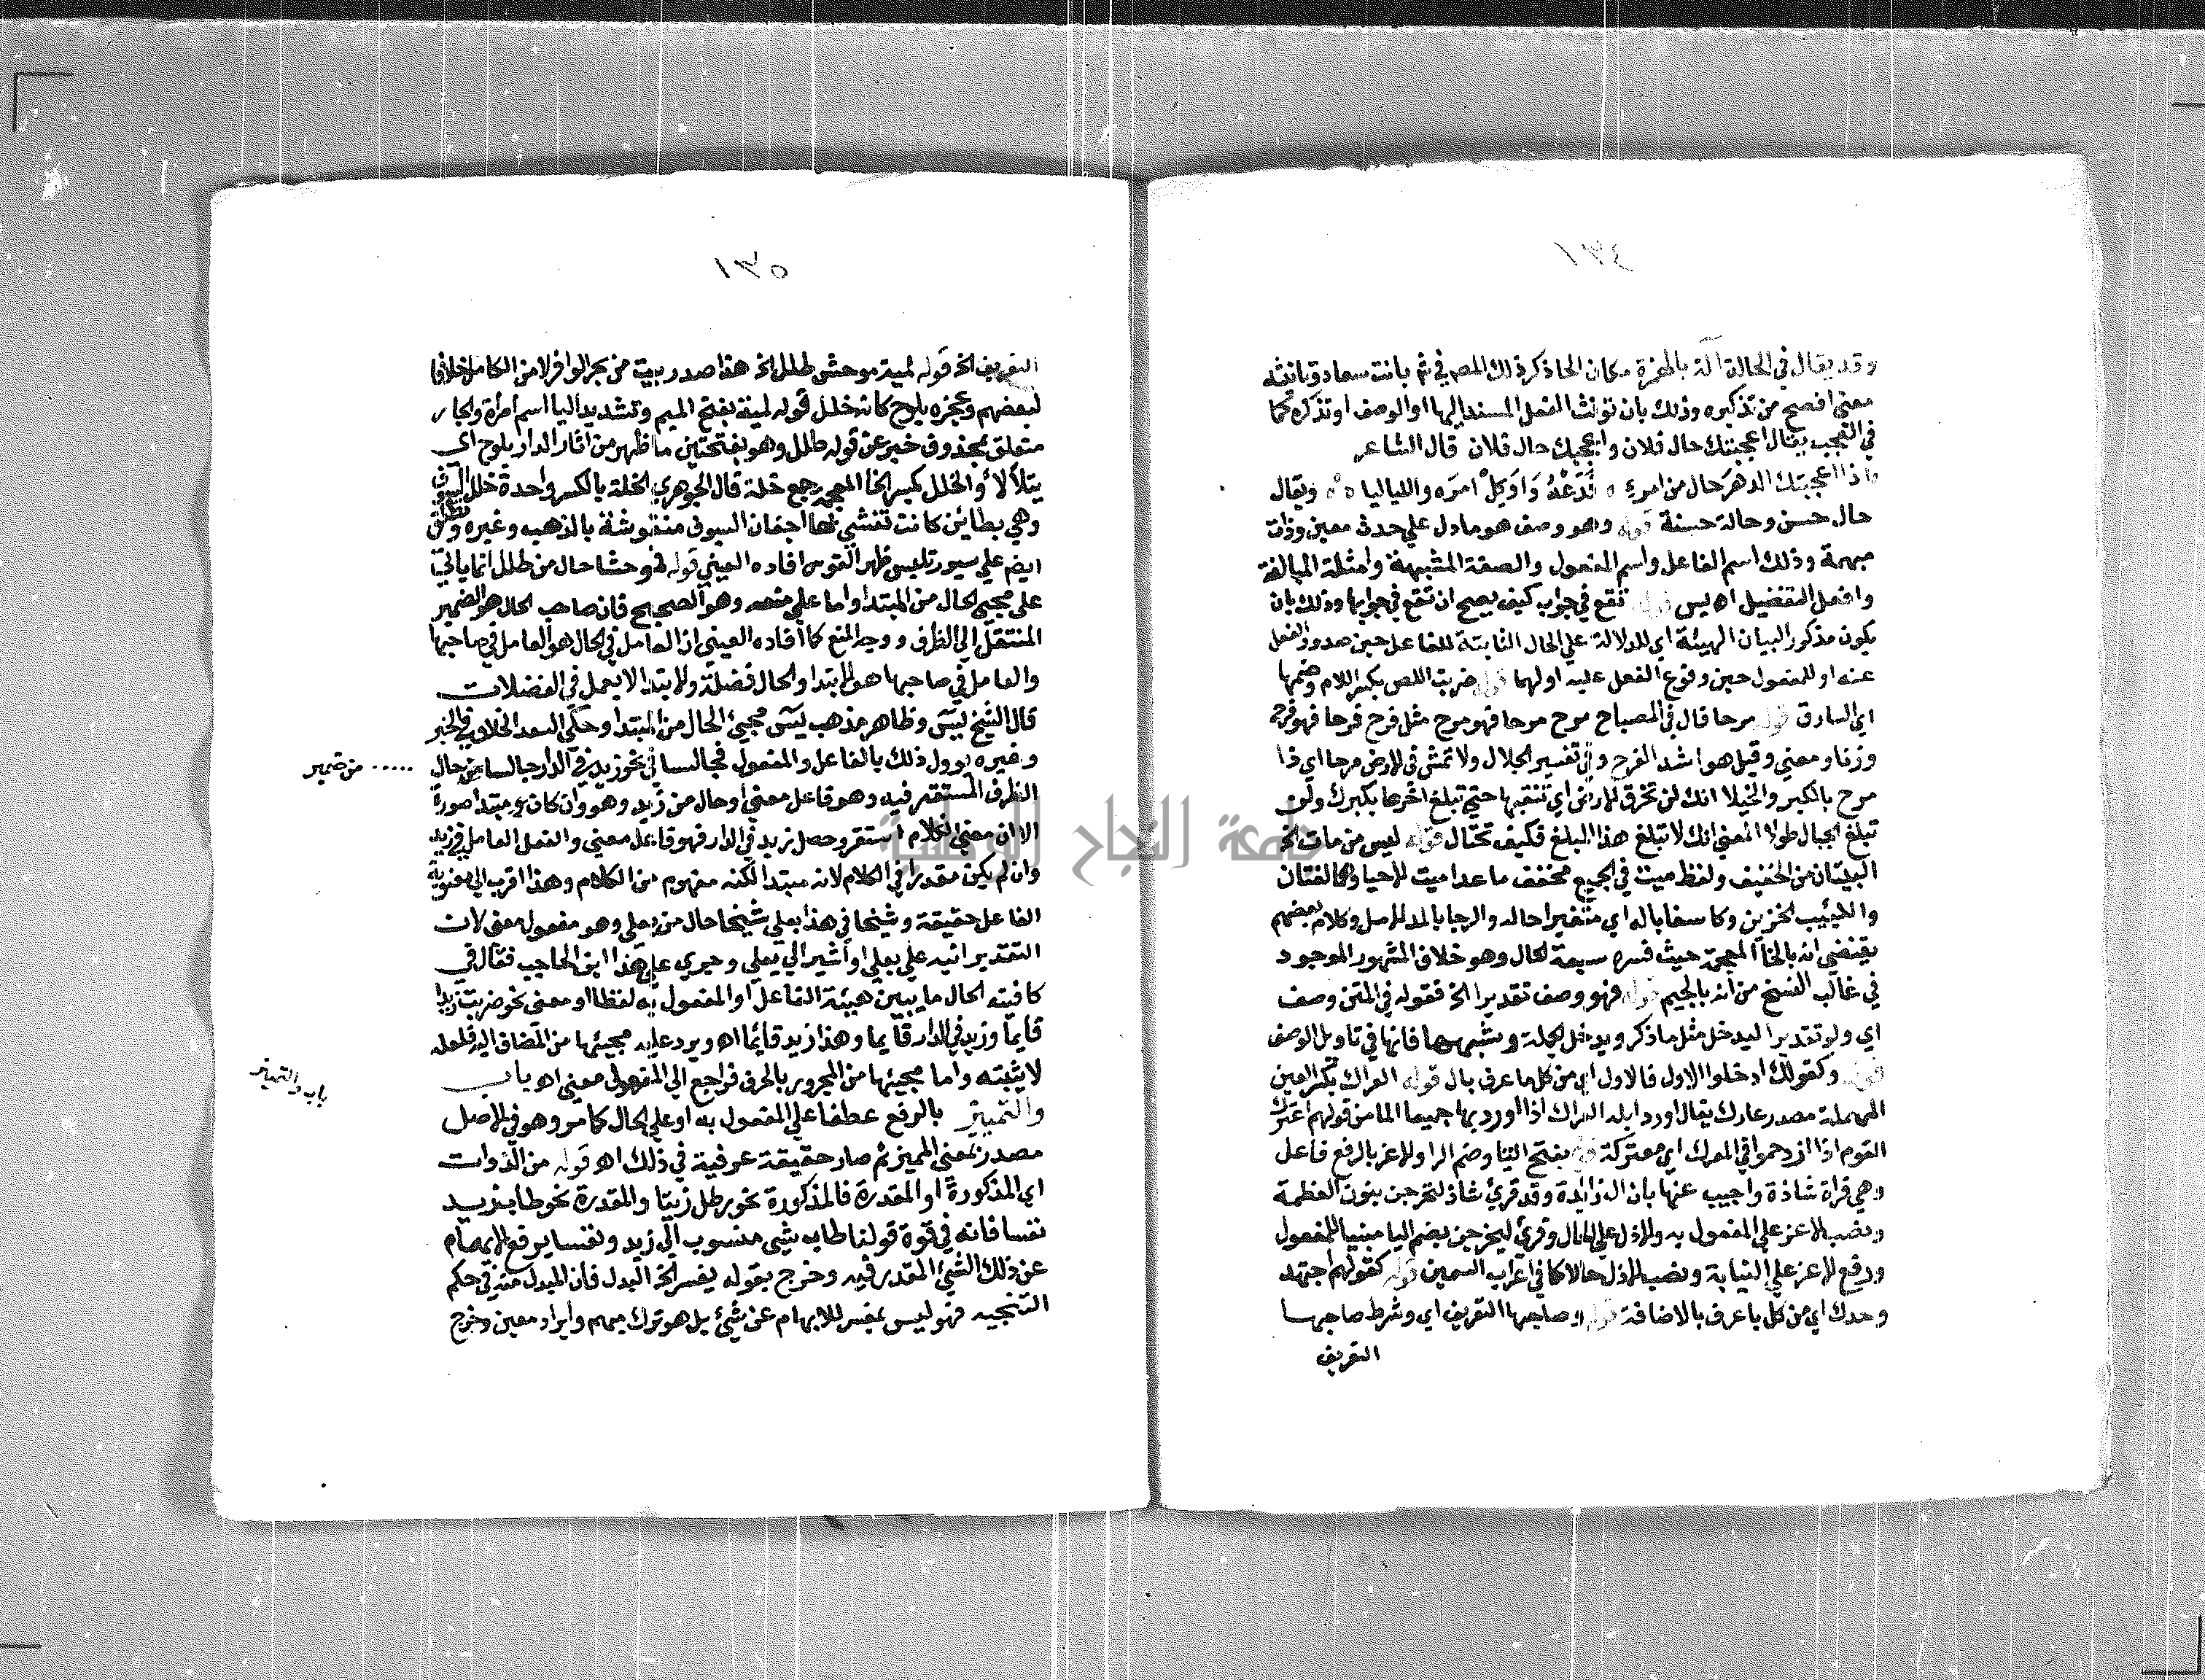 ١٣٤
وقد يقال في الحالة آلة بالهمزة مكان الحا ذكر ذلك المص في شم بانت سعاد وتانيثه
معني افصح من تذكيره وذلك بان تونث الفعل المسند اليها او الوصف او تذكره كما
في التعجب يقال اعجبتك حال فلان واعجبك حال فلان قال الشاعر
اذا اعجبتك الدهر حال من امرئ ه فدعه وواكل امره واللياليا ه ويقال
حال حسن وحالة حسنة قوله وهو وصف هو ما دل علي حدث معين وذات
مبهمة وذلك اسم الفاعل واسم المفعول والصفة المشبهة وامثلة المبالغة
وافعل التفضيل اه يس قوله تقع في جواب كيف يصح ان تقع في جوابها وذلك بان
يكون مذكورا لبيان الهيئة اي للدلالة علي الحال الثابتة للفاعل حين صدور الفعل
عنه او للمفعول حين وقوع الفعل عليه او لهما قوله ضربت اللص بكسر اللام وضمها
اي السارق قوله مرحا قال في المصباح مرح مرحا فهو مرح مثل فرح فرحا فهو فرح
وزنا ومعني وقيل هو اشد الفرح وفي تفسير الجلال ولا تمش في الارض مرحا اي ذا
مرح بالكبر والخيلا انك لن تخرق الارض اي تثقبها حتي تبلغ اخرها بكبرك ولن
تبلغ الجبال طولا المعني انك لا تبلغ هذا المبلغ فكيف تختال قوله ليس من مات الخ
البيتان من الخفيف ولفظ ميت في الجميع مخفف ما عدا ميت الاحيا
والكئيب الحزين وكاسفا باله اي متغيرا حاله والرجا بالمد الامل وكلام بعضهم
يقتضي انه بالخا المعجمة حيث فسره بسعة الحال وهو خلاف المشهور الموجود
في غالب النسخ من انه بالجيم قوله فهو وصف تقديرا الخ فقوله في المتن وصف
اي ولو تقديرا ليدخل مثل ما ذكر ويدخل الجملة وشبهها فانها في تاويل الوصف
قوله وكقولك ادخلوا الاول فالاول اي من كل ما عرف بال قوله العراك بكسر العين
المهملة مصدر عارك يقال اورد ابله العراك اذا اوردها جميعا الما من قولهم اعترك
القوم اذا ازدحموا في المعرك اي معتركة قوله بفتح اليا وضم الرا والاعز بالرفع فاعل
وهي قراة شاذة واجيب عنها بان ال زائدة وقد قرئ شاذ لنخرجن بنون العظمة
ونصب الاعز علي المفعول به والاذل علي الحال وقرئ ليخرجن بضم اليا مبنيا للمفعول
ورفع الاعز علي النيابة ونصب الاذل حالا كما في اعراب السمين قوله كقولهم اجتهد
وحدك اي من كل ما عرف بالاضافة قوله وصاحبها التعريف اي وشرط صاحبها
التعريف
١٣٥
التعريف الخ قوله لمية موحشا طلل الخ هذا صدر بيت من بحر الوافر لا من الكامل خلافا
لبعضهم وعجزه يلوح كانه خلل قوله لمية بفتح الميم وتشديد اليا اسم امراة والجار
متعلق بمحذوف خبر عن قوله طلل وهو بفتحتين ما ظهر من اثار الدار يلوح اي
يتلألأ والخلل بكسر الخا المعجمة جمع خلة قال الجوهري الخلة بالكسر واحدة خلل السيوف
وهي بطائن كانت تغشي بها اجفان السيوف منقوشة بالذهب وغيره وتطلق
ايضم علي سيور تلبس ظهر القوس افاده العيني قوله فموحشا حال من طلل انما ياتي
علي مجيي الحال من المبتدا واما علي منعه وهو الصحيح فان صاحب الحال هو الضمير
المنتقل الي الظرف ووجه المنع كما افاده العيني اذ العامل في الحال هو العامل في صاحبها
والعامل في صاحبها هو الابتدا والحال فضلة والابتدا لا يعمل في الفضلات
قال الشيخ يس وظاهر مذهب يس مجيئ الحال من المبتدا وحكي السعد الخلاف في الخبر
وغيره يوول ذلك بالفاعل والمفعول فجالسا في نحو زيد في الدار جالسا حال
..... من ضمير
الظرف المستقر فيه وهو فاعل معني او حال من زيد وهو وان كان مبتدا صورة
الا ان معني الكلام استقر وحصل زيد في الدار فهو فاعل معني والفعل العامل في زيد
وان لم يكن مقدرا في الكلام لانه مبتدا لكنه مفهوم من الكلام وهذا اقرب الي معنوية
الفاعل حقيقة وشيخا في هذا بعلي شيخا حال من بعلي وهو مفعول معني لان
التقدير انبه علي بعلي او اشير الي بعلي وجري علي هذا ابن الحاجب فقال في
كافيته الحال ما يبين هيئة الفاعل او المفعول به لفظا او معني نحو ضربت زيدا
قائما وزيد في الدار قائما وهذا زيد قائما اه ويرد عليه مجيئها من المضاف اليه فلعله
لا يثبته واما مجيئها من المجرور بالحرف فراجع الي المفعول معني اه باب
باب والتمييز
والتمييز بالرفع عطفا علي المفعول به او علي الحال كما مر وهو في الاصل
مصدر بمعني المميز ثم صار حقيقة عرفية في ذلك اه قوله من الذوات
اي المذكورة او المقدرة فالمذكورة نحو رطل زيتا والمقدرة نحو طاب زيد
نفسا فانه في قوة قولنا طاب شي منسوب الي زيد ونفسا يرفع الابهام
عن ذلك الشئ المقدر فيه وخرج بقوله يفسر الخ البدل فان المبدل منه في حكم
التنحية فهو ليس بمفسر للابهام عن شئ بل هو ترك مبهم وايراد معين وخرج